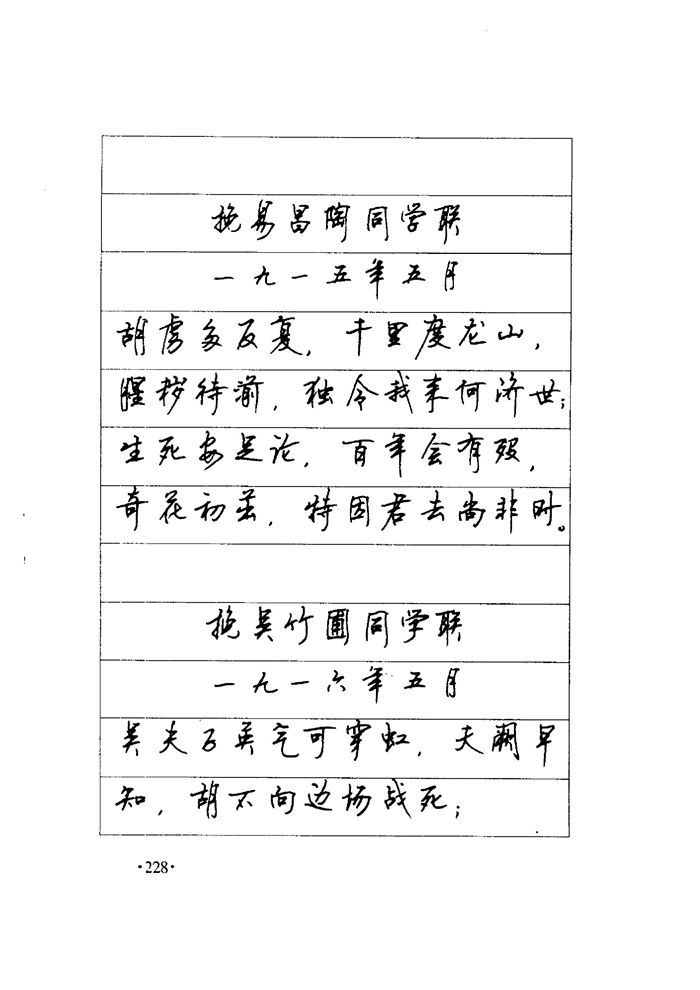 挽易昌陶同学联
一九一五年五月
胡虏多反复，千里度龙山，
腥秽待湔，独令我来何济世；
生死安足论，百年会有殁，
奇花初茁，特因君去尚非时。
挽吴竹圃同学联
一九一六年五月
吴夫子英气可穿虹，夭阏早
知，胡不向边场战死；
·228·